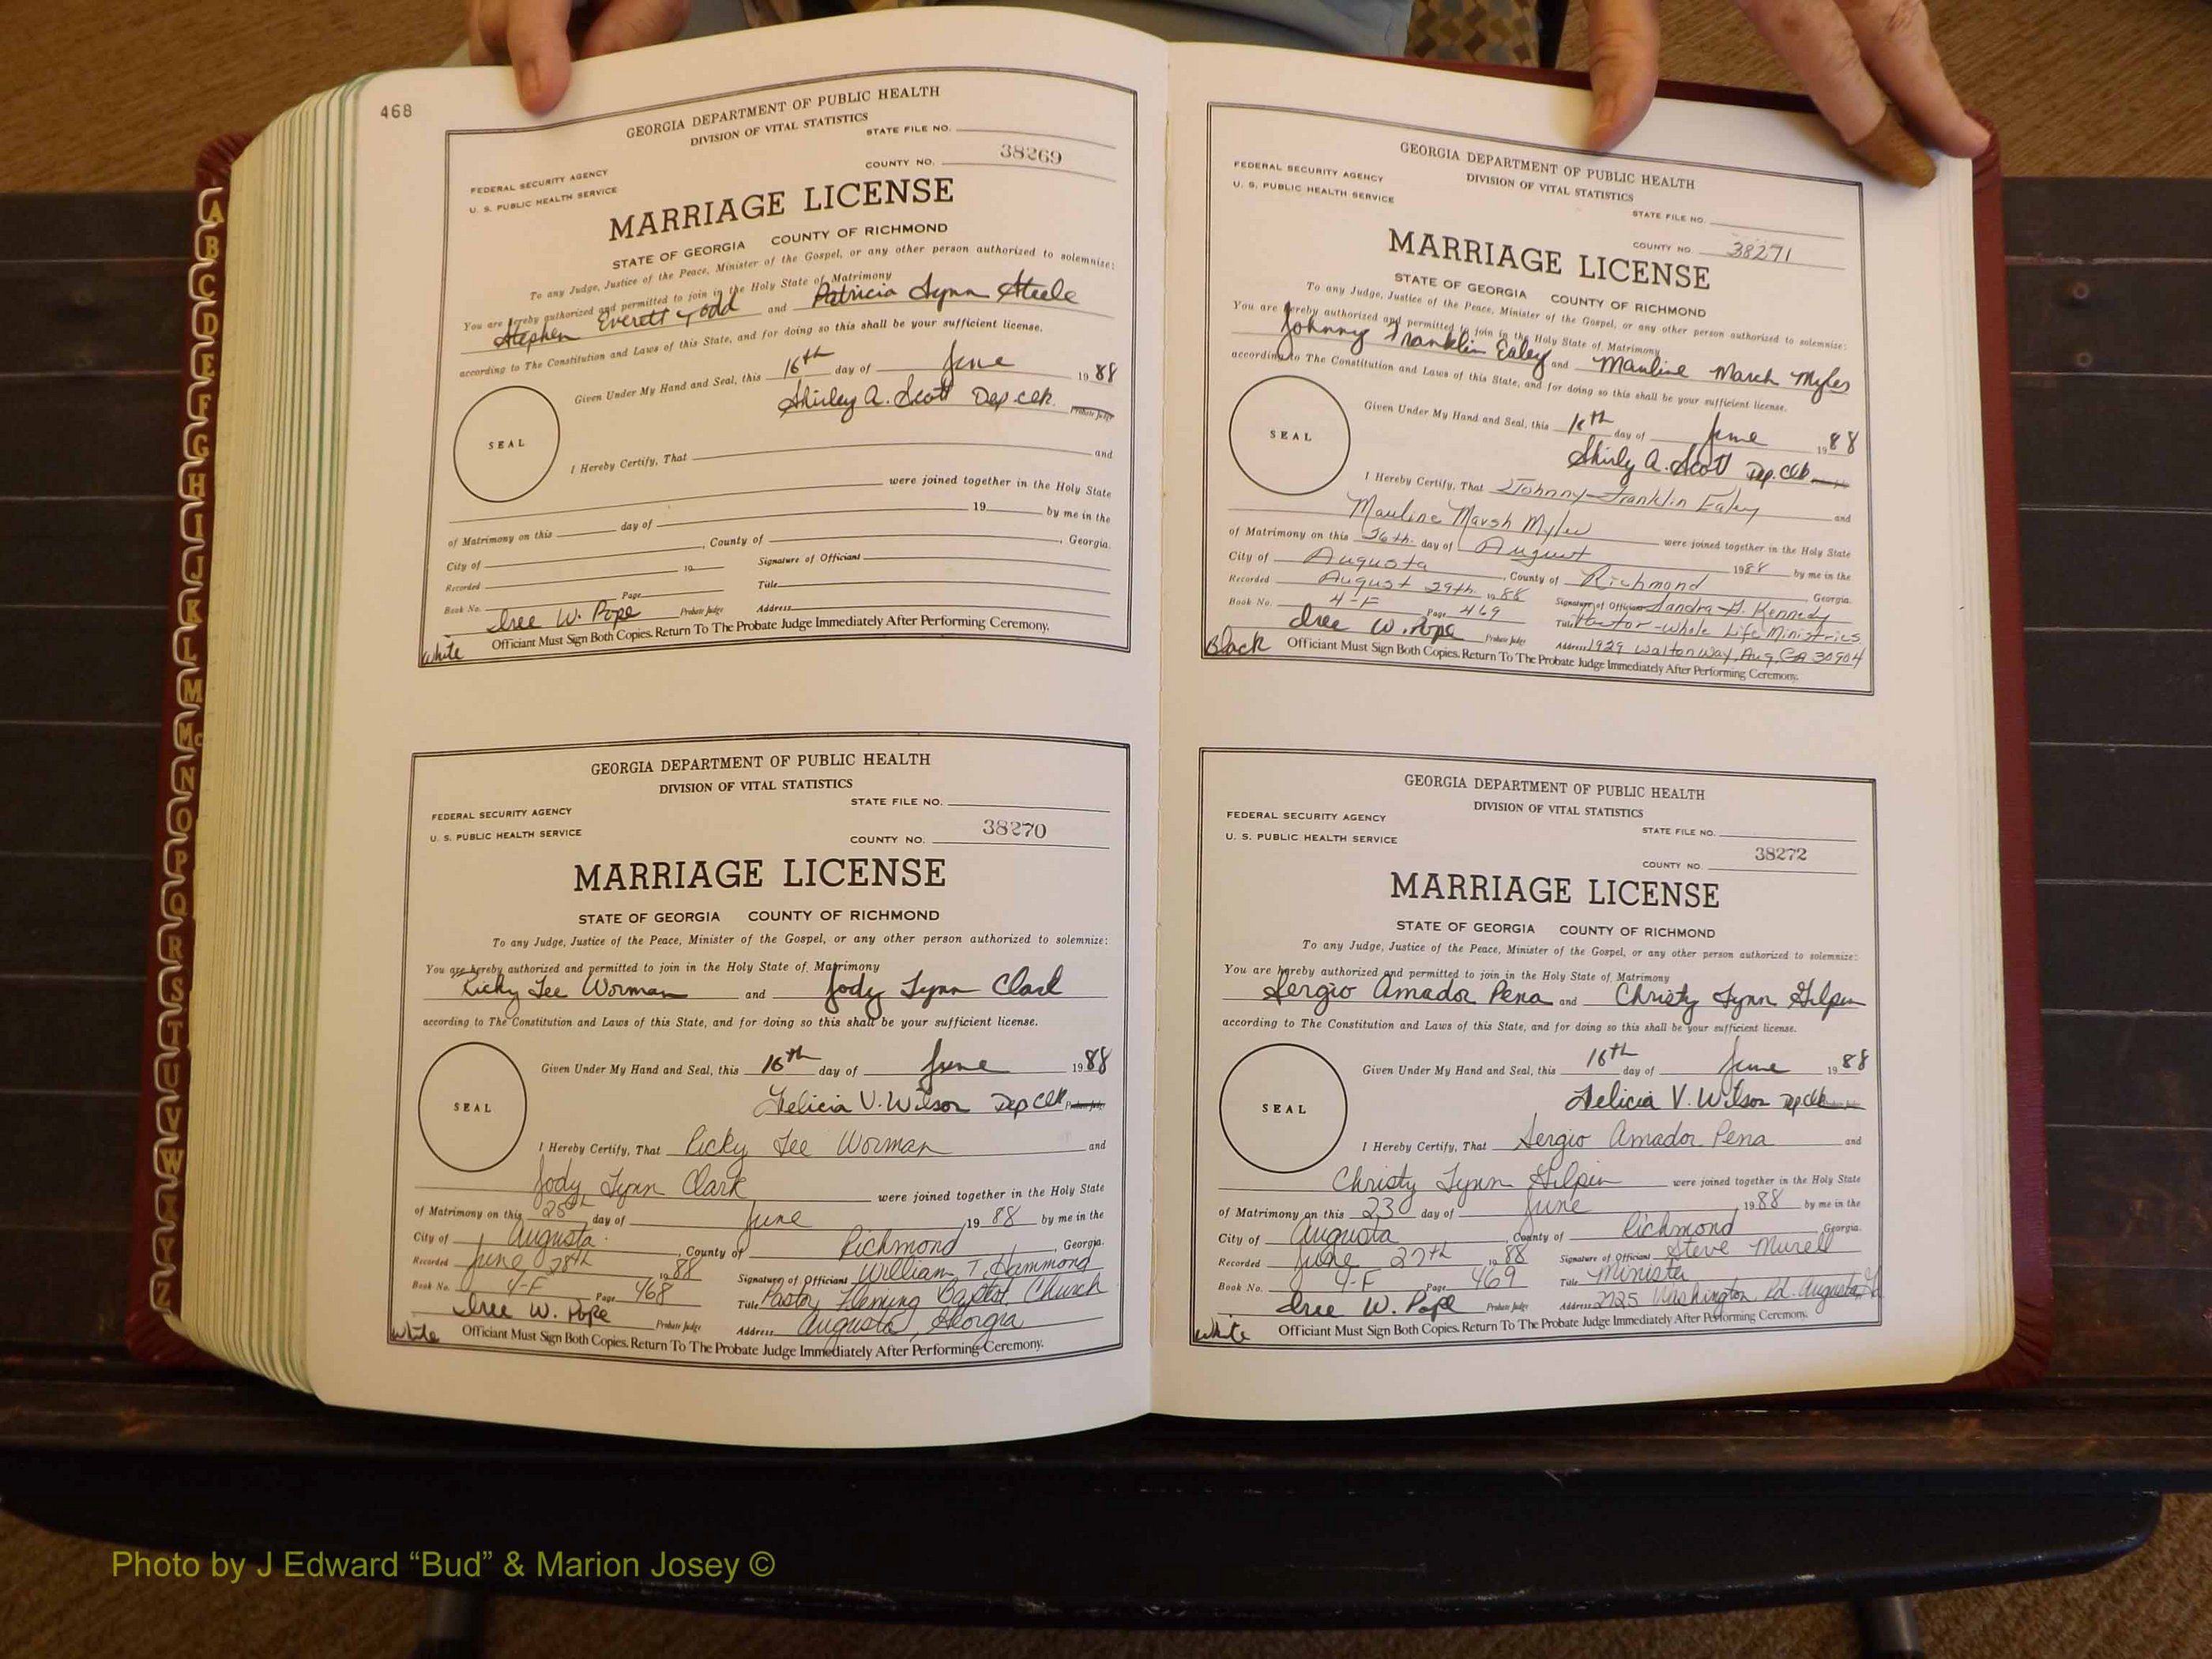 468
GEORGIA DEPARTMENT OF PUBLIC HEALTH
DIVISION OF VITAL STATISTICS
STATE FILE NO.
COUNTY NO. 38269
FEDERAL SECURITY AGENCY
U. S. PUBLIC HEALTH SERVICE
MARRIAGE LICENSE
STATE OF GEORGIA COUNTY OF RICHMOND
To any Judge, Justice of the Peace, Minister of the Gospel, or any other person authorized to solemnize:
You are hereby authorized and permitted to join in the Holy State of Matrimony
Stephen Everett Todd and Patricia Lynn Steele
according to The Constitution and Laws of this State, and for doing so this shall be your sufficient license.
Given Under My Hand and Seal, this 16th day of June 1988
Shirley A. Scott Dep clk Probate Judge
SEAL
I Hereby Certify, That and
were joined together in the Holy State
of Matrimony on this day of 19 by me in the
City of , County of , Georgia.
Recorded 19 Signature of Officiant
Book No. Page Title
Iree W. Pope Probate Judge Address
Officiant Must Sign Both Copies. Return To The Probate Judge Immediately After Performing Ceremony.
White
GEORGIA DEPARTMENT OF PUBLIC HEALTH
DIVISION OF VITAL STATISTICS
STATE FILE NO.
FEDERAL SECURITY AGENCY
U. S. PUBLIC HEALTH SERVICE
COUNTY NO. 38270
MARRIAGE LICENSE
STATE OF GEORGIA COUNTY OF RICHMOND
To any Judge, Justice of the Peace, Minister of the Gospel, or any other person authorized to solemnize:
You are hereby authorized and permitted to join in the Holy State of Matrimony
Ricky Lee Worman and Jody Lynn Clark
according to The Constitution and Laws of this State, and for doing so this shall be your sufficient license.
Given Under My Hand and Seal, this 16th day of June 1988
Felicia V. Wilson Dep Clk Probate Judge
SEAL
I Hereby Certify, That Ricky Lee Worman and
Jody Lynn Clark were joined together in the Holy State
of Matrimony on this 25th day of June 1988 by me in the
City of Augusta , County of Richmond , Georgia.
Recorded June 28th 1988 Signature of Officiant William T. Hammond
Book No. 4-F Page 468 Title Pastor, Fleming Baptist Church
Iree W. Pope Probate Judge Address Augusta, Georgia
Officiant Must Sign Both Copies. Return To The Probate Judge Immediately After Performing Ceremony.
White
GEORGIA DEPARTMENT OF PUBLIC HEALTH
DIVISION OF VITAL STATISTICS
FEDERAL SECURITY AGENCY
U. S. PUBLIC HEALTH SERVICE
STATE FILE NO.
COUNTY NO. 38271
MARRIAGE LICENSE
STATE OF GEORGIA COUNTY OF RICHMOND
To any Judge, Justice of the Peace, Minister of the Gospel, or any other person authorized to solemnize:
You are hereby authorized and permitted to join in the Holy State of Matrimony
Johnny Franklin Ealey and Mauline March Myles
according to The Constitution and Laws of this State, and for doing so this shall be your sufficient license.
Given Under My Hand and Seal, this 16th day of June 1988
Shirly A. Scott Dep. Clk
SEAL
I Hereby Certify, That Johnny Franklin Ealey and
Mauline Marsh Myles were joined together in the Holy State
of Matrimony on this 26th day of August 1988 by me in the
City of Augusta , County of Richmond Georgia.
Recorded August 29th 1988 Signature of Officiant Sandra G. Kennedy
Book No. 4-F Page 469 Title Pastor-Whole Life Ministries
Iree W. Pope Probate Judge Address 1929 Walton Way, Aug, GA 30904
Officiant Must Sign Both Copies. Return To The Probate Judge Immediately After Performing Ceremony.
Black
GEORGIA DEPARTMENT OF PUBLIC HEALTH
DIVISION OF VITAL STATISTICS
FEDERAL SECURITY AGENCY
U. S. PUBLIC HEALTH SERVICE
STATE FILE NO.
COUNTY NO. 38272
MARRIAGE LICENSE
STATE OF GEORGIA COUNTY OF RICHMOND
To any Judge, Justice of the Peace, Minister of the Gospel, or any other person authorized to solemnize:
You are hereby authorized and permitted to join in the Holy State of Matrimony
Sergio Amador Pena and Christy Lynn Gilpin
according to The Constitution and Laws of this State, and for doing so this shall be your sufficient license.
Given Under My Hand and Seal, this 16th day of June 1988
Felicia V. Wilson Dep Clk
SEAL
I Hereby Certify, That Sergio Amador Pena and
Christy Lynn Gilpin were joined together in the Holy State
of Matrimony on this 23 day of June 1988 by me in the
City of Augusta , County of Richmond , Georgia.
Recorded June 27th 1988 Signature of Officiant Steve Murell
Book No. 4-F Page 469 Title Minister
Iree W. Pope Probate Judge Address 2725 Washington Rd. Augusta, Ga
Officiant Must Sign Both Copies. Return To The Probate Judge Immediately After Performing Ceremony.
White
A
B
C
D
E
F
G
H
I
J
K
L
M
Mc
N
O
P
Q
R
S
T
U
V
W
X
Y
Z
Photo by J Edward “Bud” & Marion Josey ©